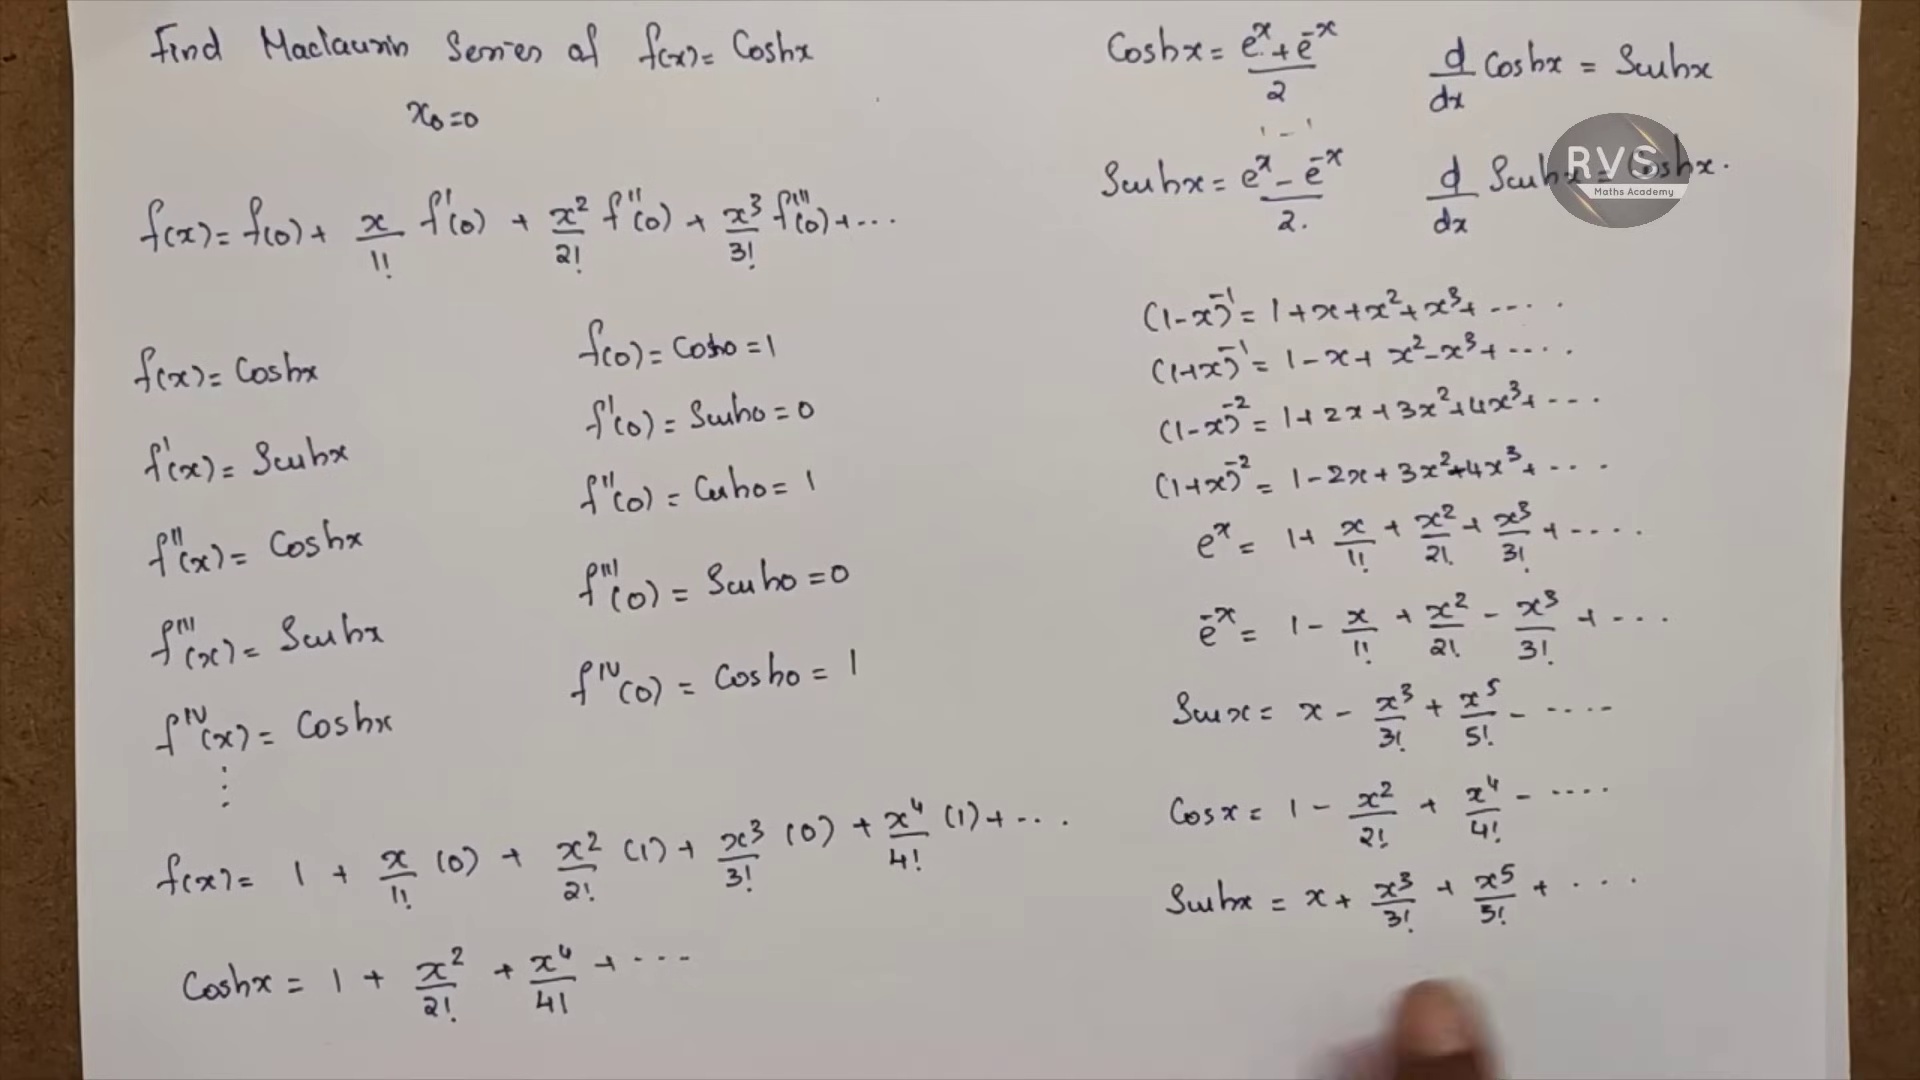 Find Maclaurin Series of f(x) = Coshx
x₀=0
f(x) = f(0) + x/1! f'(0) + x²/2! f''(0) + x³/3! f'''(0) + ...
f(x) = Coshx
f'(x) = Sinhx
f''(x) = Coshx
f'''(x) = Sinhx
f^IV(x) = Coshx
⋮
f(0) = Cosh0 = 1
f'(0) = Sinh0 = 0
f''(0) = Cosh0 = 1
f'''(0) = Sinh0 = 0
f^IV(0) = Cosh0 = 1
f(x) = 1 + x/1! (0) + x²/2! (1) + x³/3! (0) + x⁴/4! (1) + ...
Coshx = 1 + x²/2! + x⁴/4! + ...
Coshx = (e^x + e^-x)/2
d/dx Coshx = Sinhx
Sinhx = (e^x - e^-x)/2.
d/dx Sinhx = Coshx.
RVS
Maths Academy
(1-x)^-1 = 1 + x + x² + x³ + ....
(1+x)^-1 = 1 - x + x² - x³ + ....
(1-x)^-2 = 1 + 2x + 3x² + 4x³ + ...
(1+x)^-2 = 1 - 2x + 3x² - 4x³ + ...
e^x = 1 + x/1! + x²/2! + x³/3! + ....
e^-x = 1 - x/1! + x²/2! - x³/3! + ...
Sinx = x - x³/3! + x⁵/5! - ....
Cosx = 1 - x²/2! + x⁴/4! - ....
Sinhx = x + x³/3! + x⁵/5! + ...